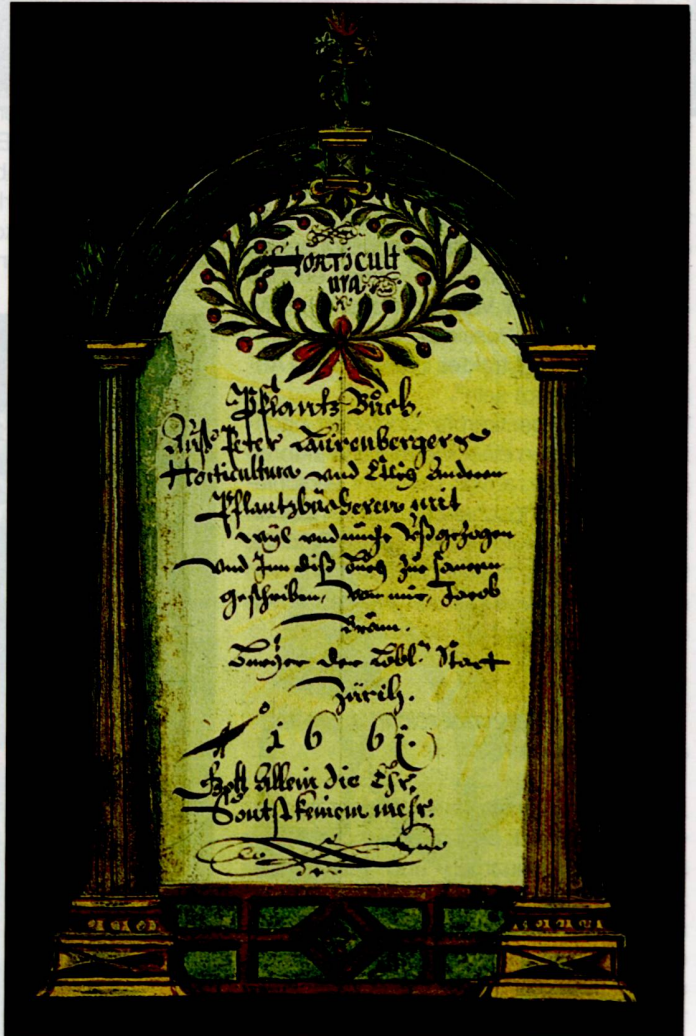 Horticult
ura
Pflantz Buch,
Auß Peter Laurenbergers
Horticultura vnd Ettlich Anderen
Pflantzbücheren mit
wyl vnd mühe Vßgezogen
Vnd Inn diß Buch zue samen
geschriben, Von mir, Jacob
Bräm.
Burger der Lobl. Statt
Zürich.
1661.
Gott Allein die Ehr,
Sontst keinem mehr.